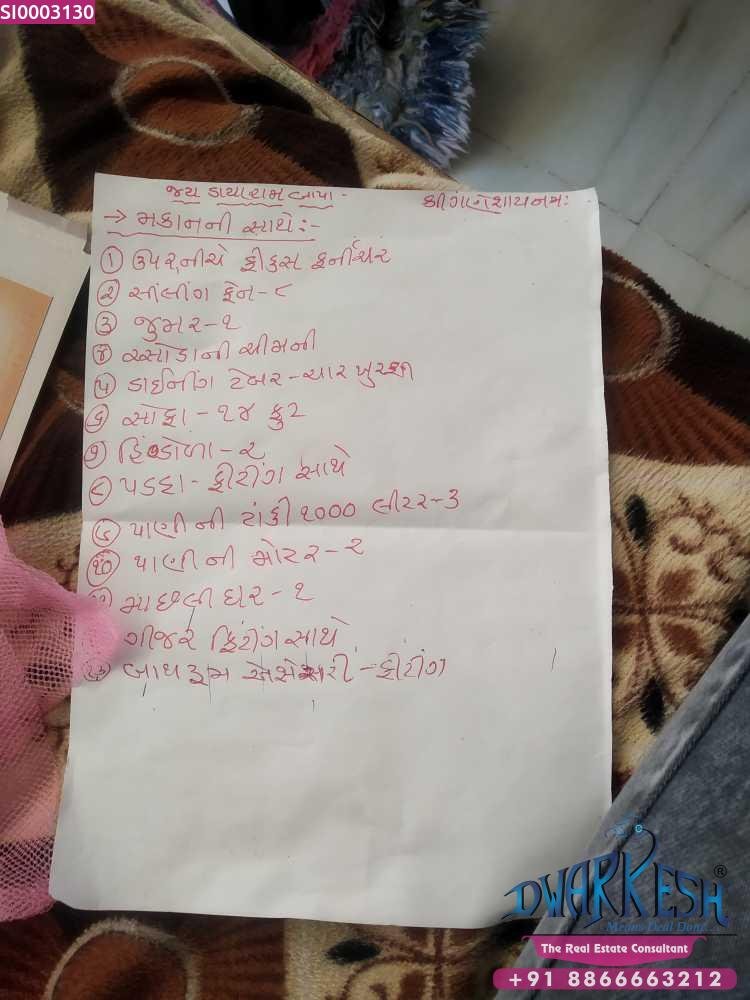 SI0003130
જય ડાયારામ બાપા - શ્રી ગણેશાયનમઃ
→ મકાનની સાથે :-
① ઉપર,નીચે ફીકસ ફર્નીચર
② સીલીંગ ફેન - ૮
③ જુમર - ૧
④ રસોડાની ચીમની
⑤ ડાઈનીંગ ટેબર - ચાર ખુરશી
⑥ સોફા - ૧૪ ફુટ
⑦ હિંડોળા - ૨
⑧ પડદા - ફીટીંગ સાથે
⑨ પાણી ની ટાંકી ૧૦૦૦ લીટર - ૩
⑩ પાણી ની મોટર - ૨
માછલી ઘર - ૧
ગીજર ફિટીંગ સાથે
બાથરૂમ એસેસરી - ફીટીંગ
DWARKESH®
Means Deal Done...
The Real Estate Consultant
+91 8866663212